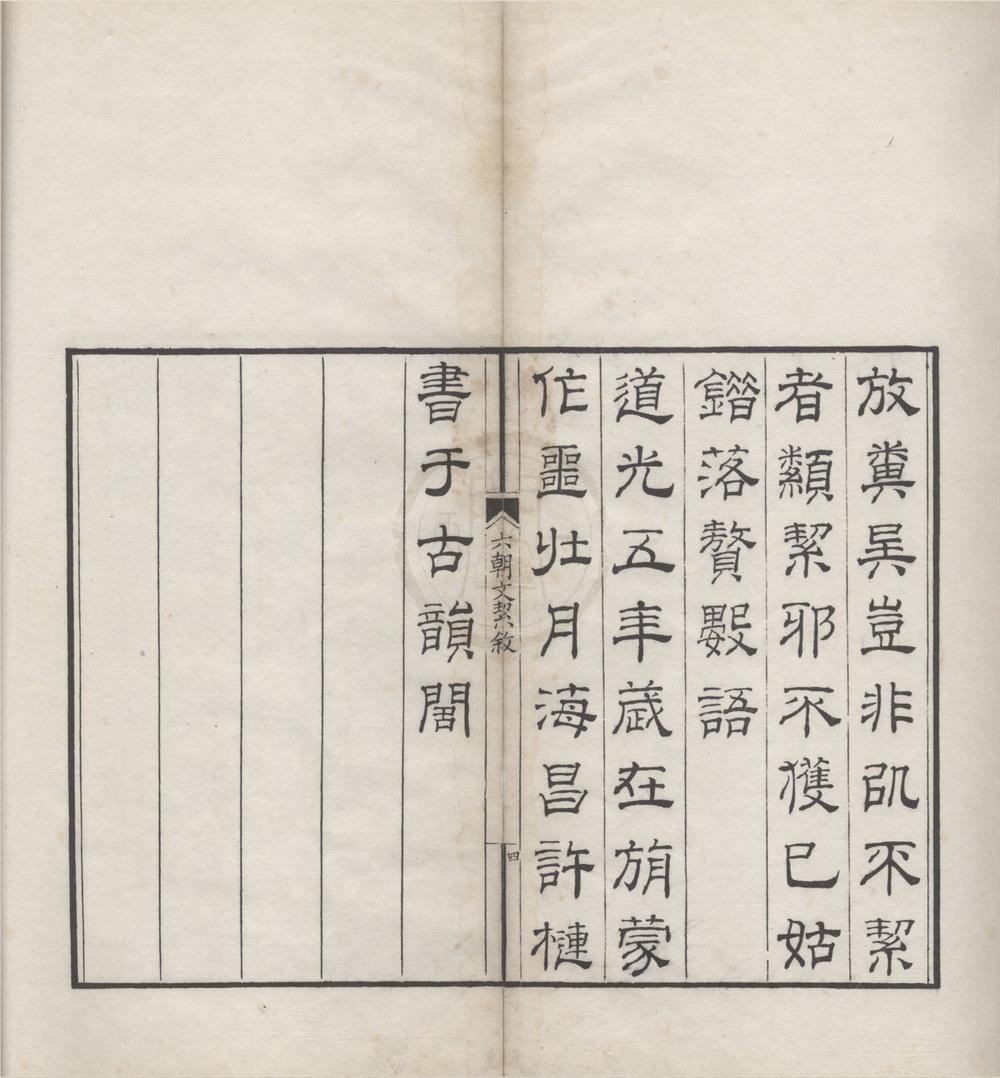 放糞矣豈非以不絜
者纇絜邪不獲已姑
鐕落贅數語
道光五年歲在旃蒙
作噩壯月海昌許槤
六朝文絜敘
四
書于古韻閣